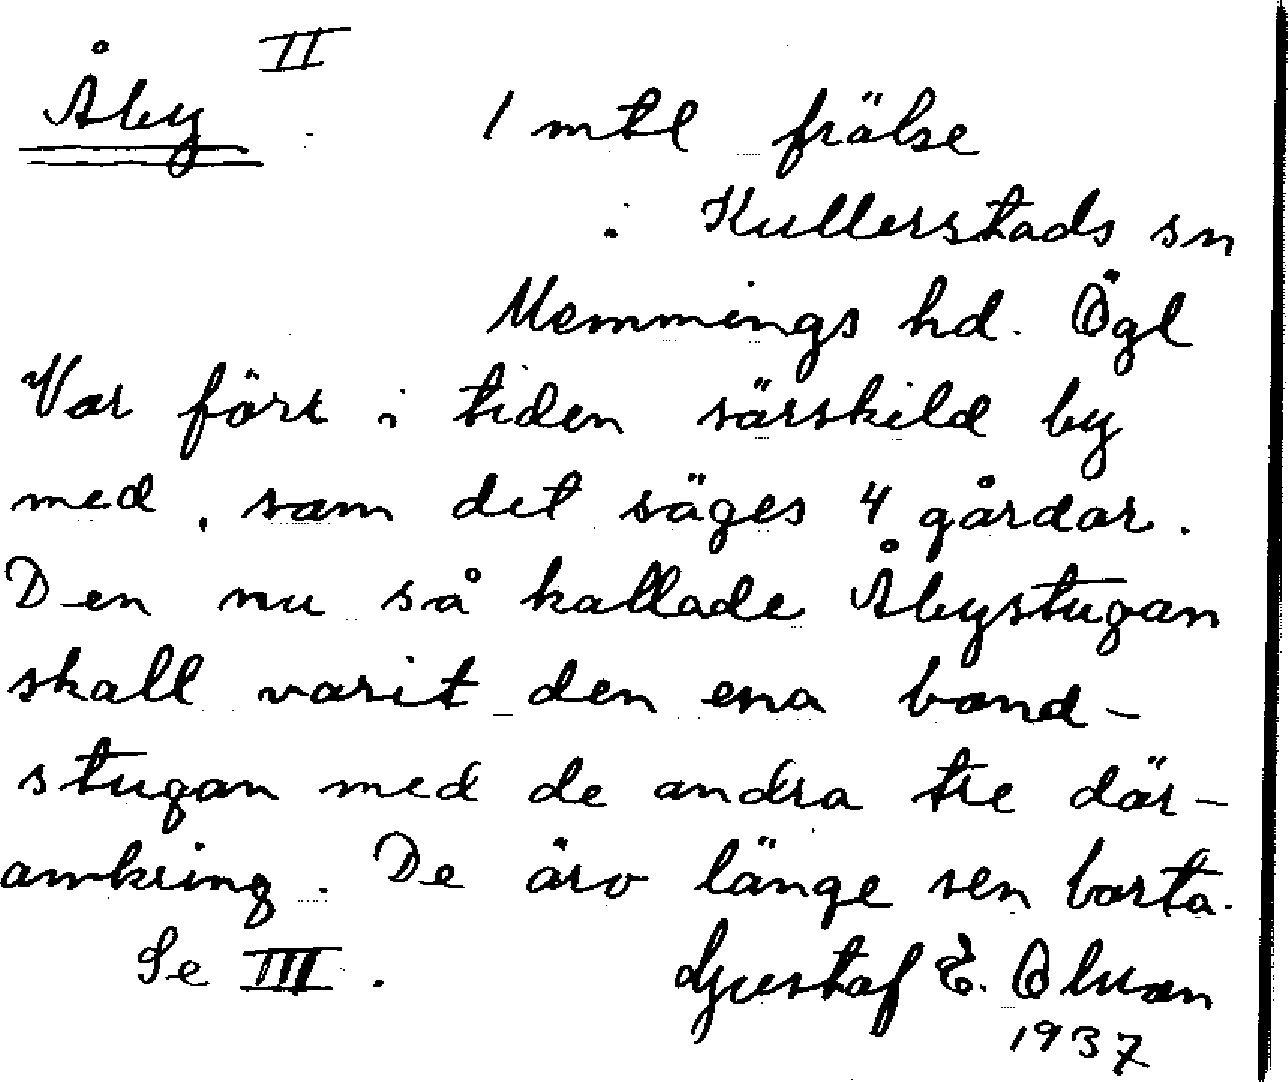 II
Åby 1 mtl frälse
i Kullerstads sn
Memmings hd. Ögl
Var förr i tiden särskild by
med, som det säges 4 gårdar.
Den nu så kallade Åbystugan
skall varit den ena bond-
stugan med de andra tre där-
omkring. De äro länge sen borta.
Se III. Gustaf E. Olsson
1937